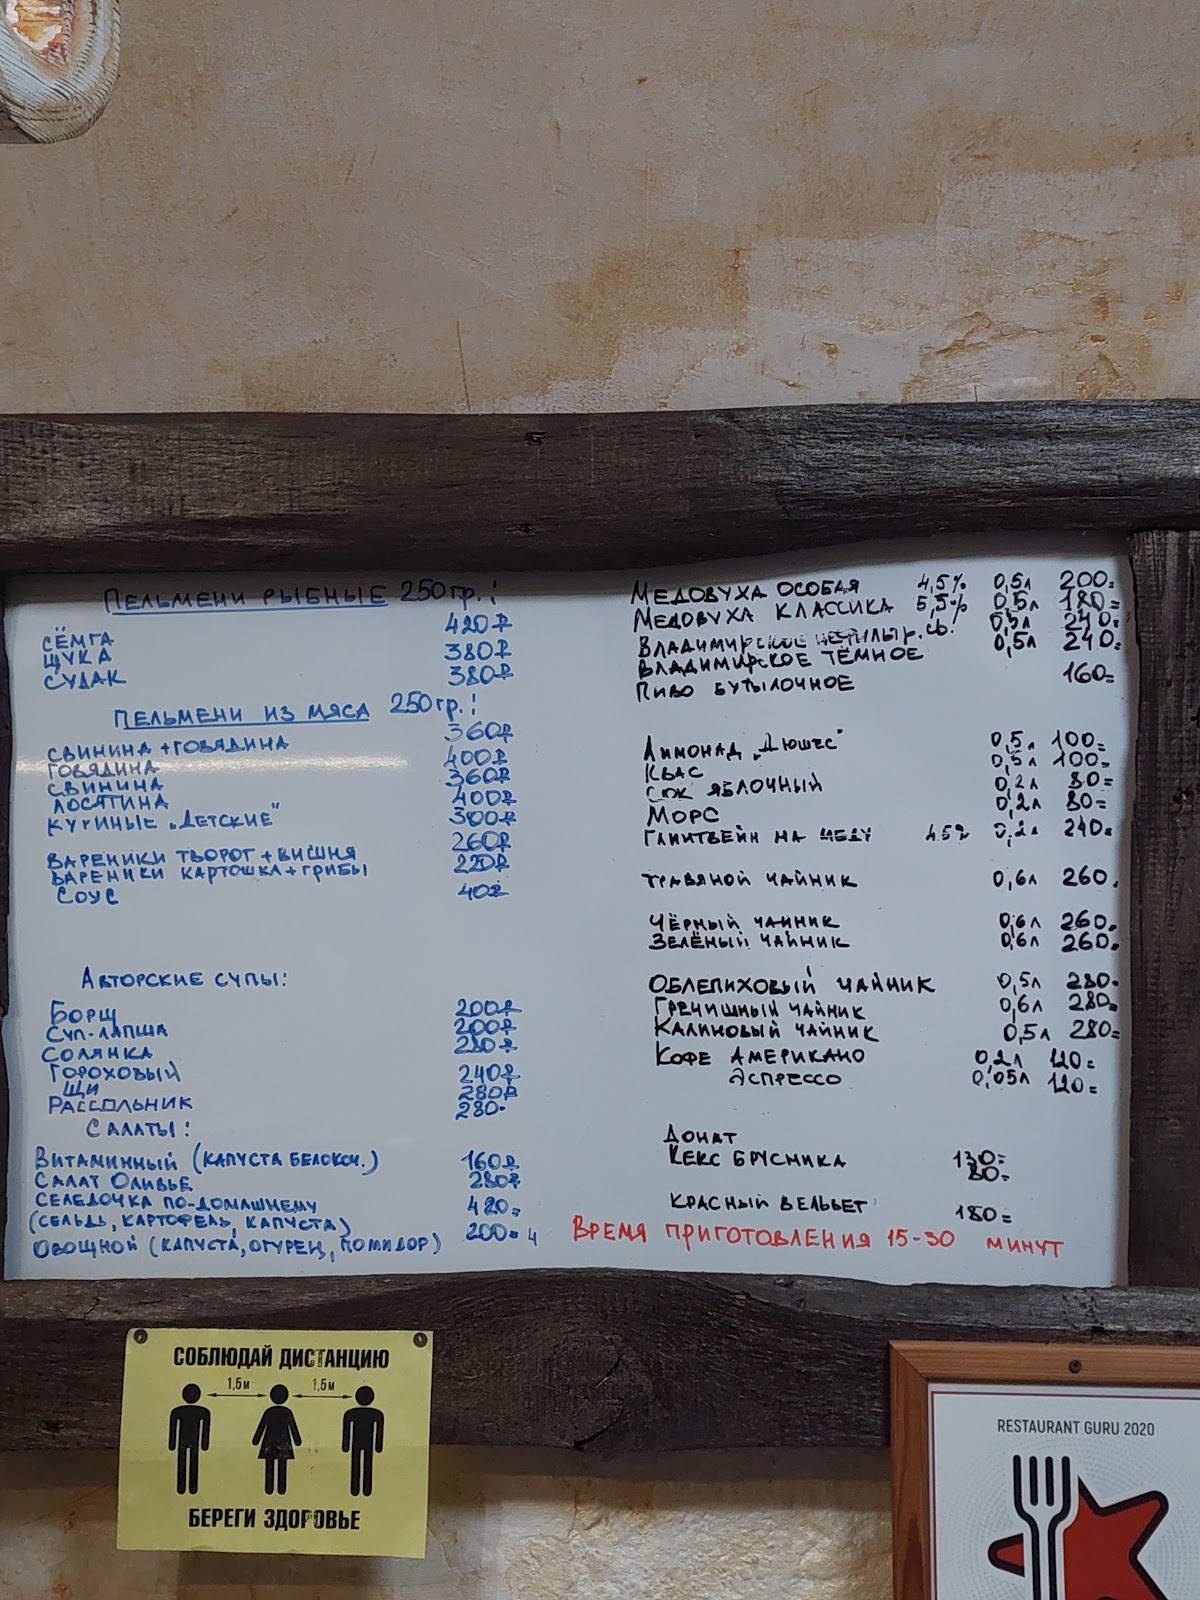 Пельмени рыбные 250гр.!
Сёмга 420₽
Щука 380₽
Судак 380₽
Пельмени из мяса 250гр.!
Свинина + говядина 360₽
Говядина 400₽
Свинина 360₽
Лосятина 400₽
Куриные „Детские" 300₽
Вареники творог + вишня 260₽
Вареники картошка + грибы 220₽
Соус 40₽
Авторские супы:
Борщ 200₽
Суп-лапша 200₽
Солянка
Гороховый 240₽
Щи 280₽
Рассольник 280-
Салаты:
Витаминный (капуста белокоч.) 160₽
Салат Оливье 280₽
Селедочка по-домашнему 420=
(сельдь, картофель, капуста)
Овощной (капуста, огурец, помидор) 200=
Медовуха особая 4,5% 0,5л 200=
Медовуха классика 5,5% 0,5л 180=
Владимирское св. 0,5л 240=
Владимирское тёмное 0,5л 240=
Пиво бутылочное 160=
Лимонад „Дюшес" 0,5л 100=
Квас 0,5л 100=
Сок яблочный 0,2л 80=
Морс 0,2л 80=
Глинтвейн на меду 0,2л 240=
Травяной чайник 0,6л 260.
Чёрный чайник 0,6л 260-
Зелёный чайник 0,6л 260-
Облепиховый чайник 0,5л 280-
Гречишный чайник 0,6л 280=
Калиновый чайник 0,5л 280=
Кофе Американо 0,2л 120=
Эспрессо 0,05л 120=
Донат 130=
Кекс брусника 80=
Красный вельвет 180=
Время приготовления 15-30 минут
СОБЛЮДАЙ ДИСТАНЦИЮ
1,5м 1,5м
БЕРЕГИ ЗДОРОВЬЕ
RESTAURANT GURU 2020